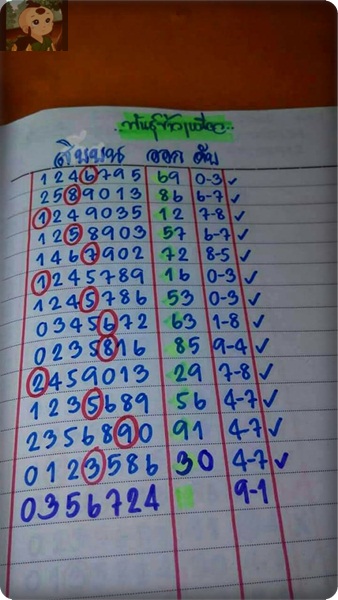 สิบบน ออก ดับ
1246795 69 0-3 ✓
2589013 86 6-7 ✓
1249035 12 7-8 ✓
1258903 57 6-7 ✓
1467902 72 8-5 ✓
1245789 16 0-3 ✓
1245786 53 0-3 ✓
0345672 63 1-8 ✓
0235816 85 9-4 ✓
2459013 29 7-8 ✓
1235689 56 4-7 ✓
2356890 91 4-7 ✓
0123586 30 4-7 ✓
0356724 9-1